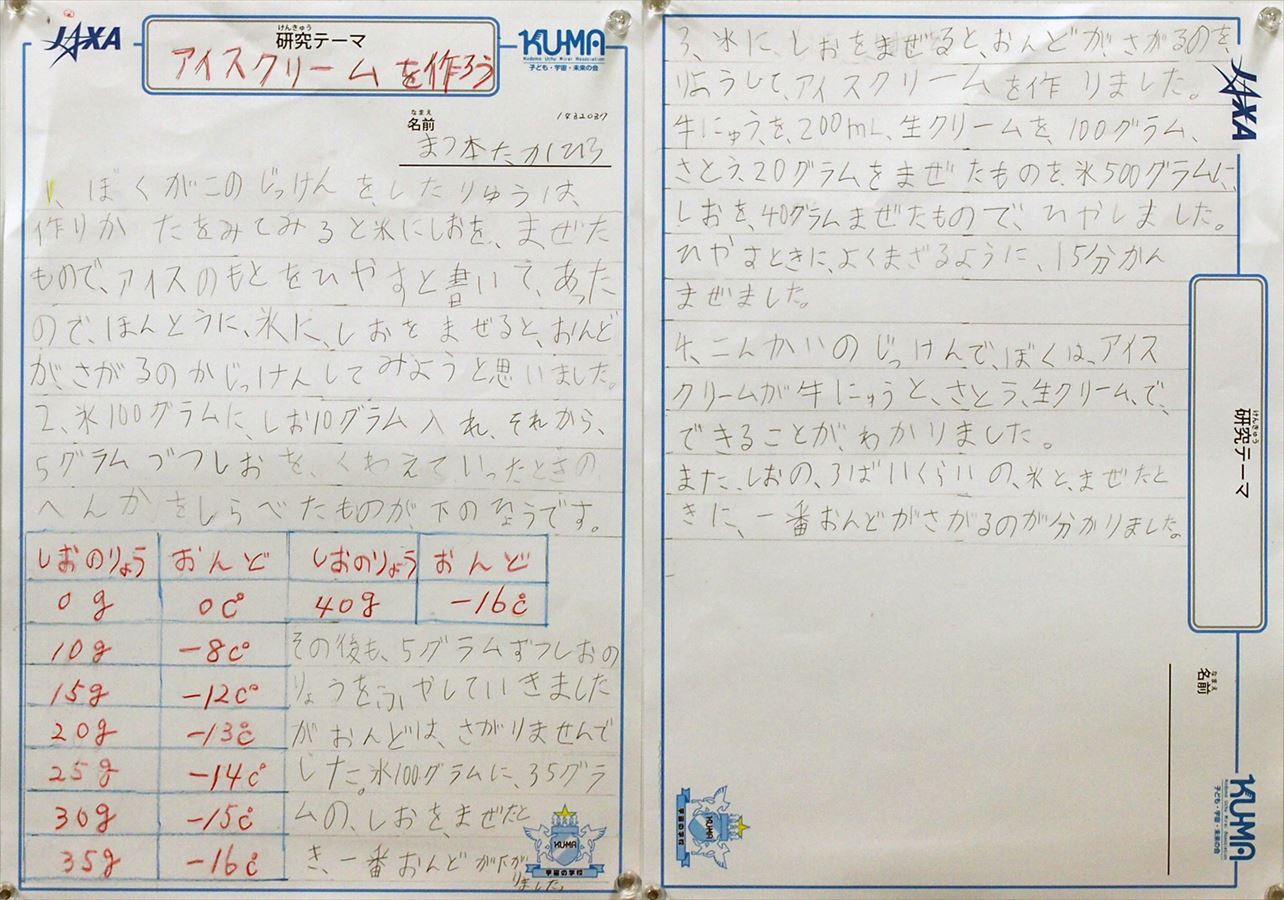 JAXA
けんきゅう
研究テーマ
アイスクリームを作ろう
KU-MA
Kodomo Uchu Mirai Association
子ども・宇宙・未来の会
1432037
なまえ
名前
まつ本たかひろ
1、ぼくがこのじっけんをしたりゅうは、
作りかたをみてみると氷にしおを、まぜた
もので、アイスのもとをひやすと書いて、あった
ので、ほんとうに、氷に、しおをまぜると、おんど
が、さがるのかじっけんしてみようと思いました。
2、氷100グラムに、しお10グラム入れ、それから、
5グラムづつしおを、くわえていったときの
へんかをしらべたものが、下のようです。
しおのりょう おんど しおのりょう おんど
0g 0c° 40g -16c°
10g -8c°
15g -12c°
20g -13c°
25g -14c°
30g -15c°
35g -16c°
その後も、5グラムずつしおの
りょうを、ふやしていきました
がおんどは、さがりませんで
した。氷100グラムに、35グラ
ムの、しおを、まぜたと
き、一番おんどが下が
りました。
KU-MA
宇宙の学校
3、氷に、しおをまぜると、おんどがさがるのを、
りようして、アイスクリームを作りました。
牛にゅうを、200mL、生クリームを、100グラム、
さとう、20グラムをまぜたものを、氷500グラムに、
しおを、40グラムまぜたもので、ひやしました。
ひやすときに、よくまざるように、15分かん
まぜました。
4、こんかいのじっけんで、ぼくは、アイス
クリームが牛にゅうと、さとう、生クリーム、で、
できることが、わかりました。
また、しおの、3ばいくらいの、氷と、まぜたと
きに、一番おんどがさがるのが分かりました。
JAXA
けんきゅう
研究テーマ
なまえ
名前
KU-MA
Kodomo Uchu Mirai Association
子ども・宇宙・未来の会
KU-MA
宇宙の学校